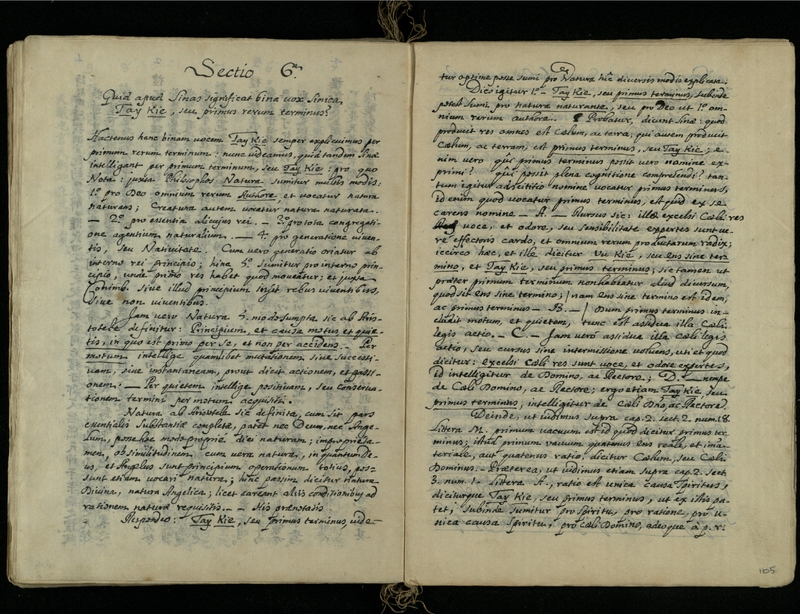 Sectio 6.ª
Quid apud Sinas significat bina vox Sinica
Tay Kie, seu primus rerum terminus?
Hactenus hanc binam vocem Tay Kie semper explicuimus per
primum rerum terminum: nunc videamus, quid tandem Sinae
intelligant per primum terminum, seu Tay Kie: pro quo
Nota: juxta Philosophos Natura sumitur multis modis:
1.º pro Deo omnium rerum Authore, et vocatur natura
naturans; Creatura autem vocatur natura naturata.
— 2.º pro essentia alicujus rei. — 3.º pro tota congregati-
one agentium naturalium. — 4.º pro generatione viven-
tis, seu Nativitate. Cum vero generatio oriatur ab
interno rei principio; hinc 5.º sumitur pro interno prin-
cipio, unde res habet quod moveatur; et juxta
Conimb. sive illud principium insit rebus viventibus,
sive non viventibus.
Jam vero Natura 5.º modo sumpta sic ab Aris-
totele definitur: Principium, et causa motus et quie-
tis, in quo est primo per se, et non per accidens. — Per
motum intellige quamlibet mutationem sive successi-
vam, sive instantaneam, prout dicit actionem, et passi-
onem. — Per quietem intellige positivam, seu Conserva-
tionem termini per motum acquisiti.
Natura ab Aristotele sic definita, cum sit pars
essentialis substantiae completae, patet nec Deum, nec Ange-
lum, posse hoc modo proprie dici naturam; improprie ta-
men, ob similitudinem cum vera natura, in quantum De-
us, et Angelus sunt principium operationum totius, pos-
sunt etiam vocari natura; hinc passim dicitur natura
Divina, natura Angelica; licet careant aliis conditionibus ad
rationem naturae requisitis. — His praenotatis
Respondeo: Tay Kie, seu primus terminus, vide-
tur optime posse sumi pro Natura hic diversis modis explicata.
Dices igitur 1.º Tay Kie, seu primus terminus, subinde
potest sumi pro natura naturante, seu pro Deo ut 1.º om-
nium rerum authore. Probatur, dicunt Sinae: quod
producit res omnes est Caelum, ac terra; qui autem producit
Caelum, ac terram, est primus terminus, seu Tay Kie; e-
nim vero qui primus terminus possit vero nomine ex-
primi? qui possit plena cognitione comprehendi? tan-
tum igitur adscititio nomine vocatur primus terminus,
id enim quod vocatur primus terminus, est quid ex se
carens nomine — A. — Rursus sic: illae excelsi Caeli res
voce, et odore, seu sensibilitate expertes sunt ve-
re effectoris cardo, et omnium rerum productarum radix;
iccirco haec, et illa dicitur Vu Kie, seu ens sine ter-
mino, et Tay Kie, seu primus terminus; sic tamen ut
praeter primum terminum non habeatur aliud diversum,
quod sit ens sine termino; nam ens sine termino est idem,
ac primus terminus — B. — Dum primus terminus in-
cludit motum, et quietem, tunc est assidua illa Caeli
legis actio. — C. — Jam vero assidua illa Caeli legis
actio, seu cursus sine intermissione volvens, uti et quod
dicitur: excelsi Caeli res sunt voce, et odore expertes,
id intelligitur de Domino, ac Rectore; D. — nempe
de Caeli Domino, ac Rectore; ergo etiam Tay Kie, seu
primus terminus, intelligitur de Caeli Dno, ac Rectore.
Deinde, ut vidimus supra cap. 2. sect. 2. num. 18.
Littera M. primum vacuum est id quod dicitur primus ter-
minus; illud primum vacuum quatenus ens reale, et ima-
teriale, aut quatenus ratio, dicitur Caelum, seu Caeli
Dominus. — Praeterea, ut vidimus etiam supra cap. 2. sect.
3. num. 1. Littera A., ratio est unica causa spiritus;
diciturque Tay Kie, seu primus terminus, ut ex illis pa-
tet; subinde sumitur pro spiritu, pro ratione, pro u-
nica causa spiritus, pro Caeli Domino, adeoque a p. r.
105